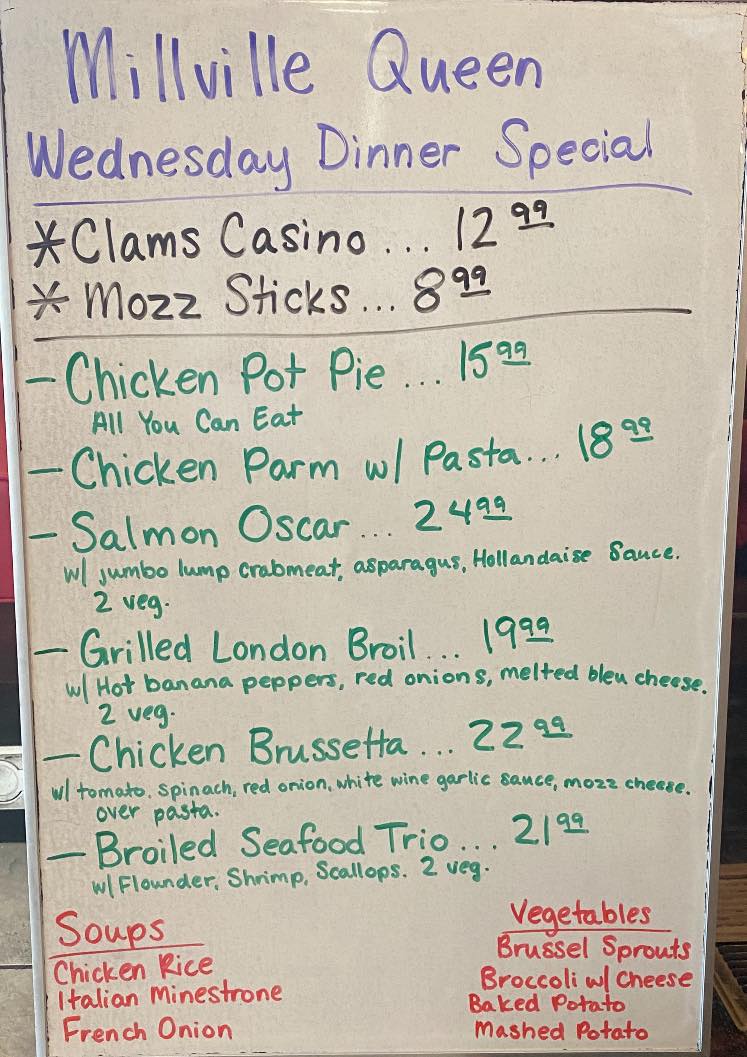 Millville Queen
Wednesday Dinner Special
* Clams Casino ... 12 99
* Mozz Sticks ... 8 99
- Chicken Pot Pie ... 15 99
All You Can Eat
- Chicken Parm w/ Pasta ... 18 99
- Salmon Oscar ... 24 99
w/ jumbo lump crabmeat, asparagus, Hollandaise Sauce.
2 veg.
- Grilled London Broil ... 19 99
w/ Hot banana peppers, red onions, melted bleu cheese.
2 veg.
- Chicken Brussetta ... 22 99
w/ tomato, spinach, red onion, white wine garlic sauce, mozz cheese.
over pasta.
- Broiled Seafood Trio ... 21 99
w/ Flounder, Shrimp, Scallops. 2 veg.
Soups
Chicken Rice
Italian Minestrone
French Onion
Vegetables
Brussel Sprouts
Broccoli w/ Cheese
Baked Potato
Mashed Potato